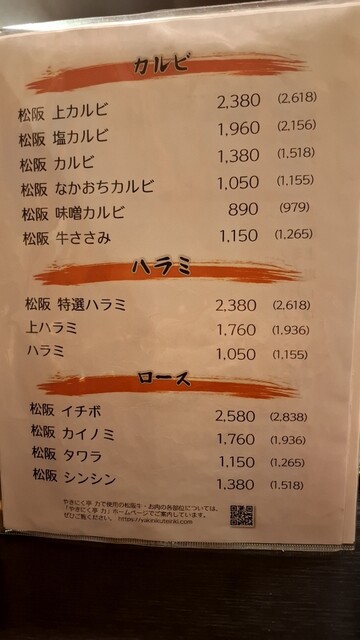 カルビ
松阪 上カルビ 2,380 (2,618)
松阪 塩カルビ 1,960 (2,156)
松阪 カルビ 1,380 (1,518)
松阪 なかおちカルビ 1,050 (1,155)
松阪 味噌カルビ 890 (979)
松阪 牛ささみ 1,150 (1,265)
ハラミ
松阪 特選ハラミ 2,380 (2,618)
上ハラミ 1,760 (1,936)
ハラミ 1,050 (1,155)
ロース
松阪 イチボ 2,580 (2,838)
松阪 カイノミ 1,760 (1,936)
松阪 タワラ 1,150 (1,265)
松阪 シンシン 1,380 (1,518)
やきにく亭 力で使用の松阪牛・お肉の各部位については、
「やきにく亭 力」ホームページでご案内しています。
ぜひご覧ください。 https://yakinikuteiriki.com